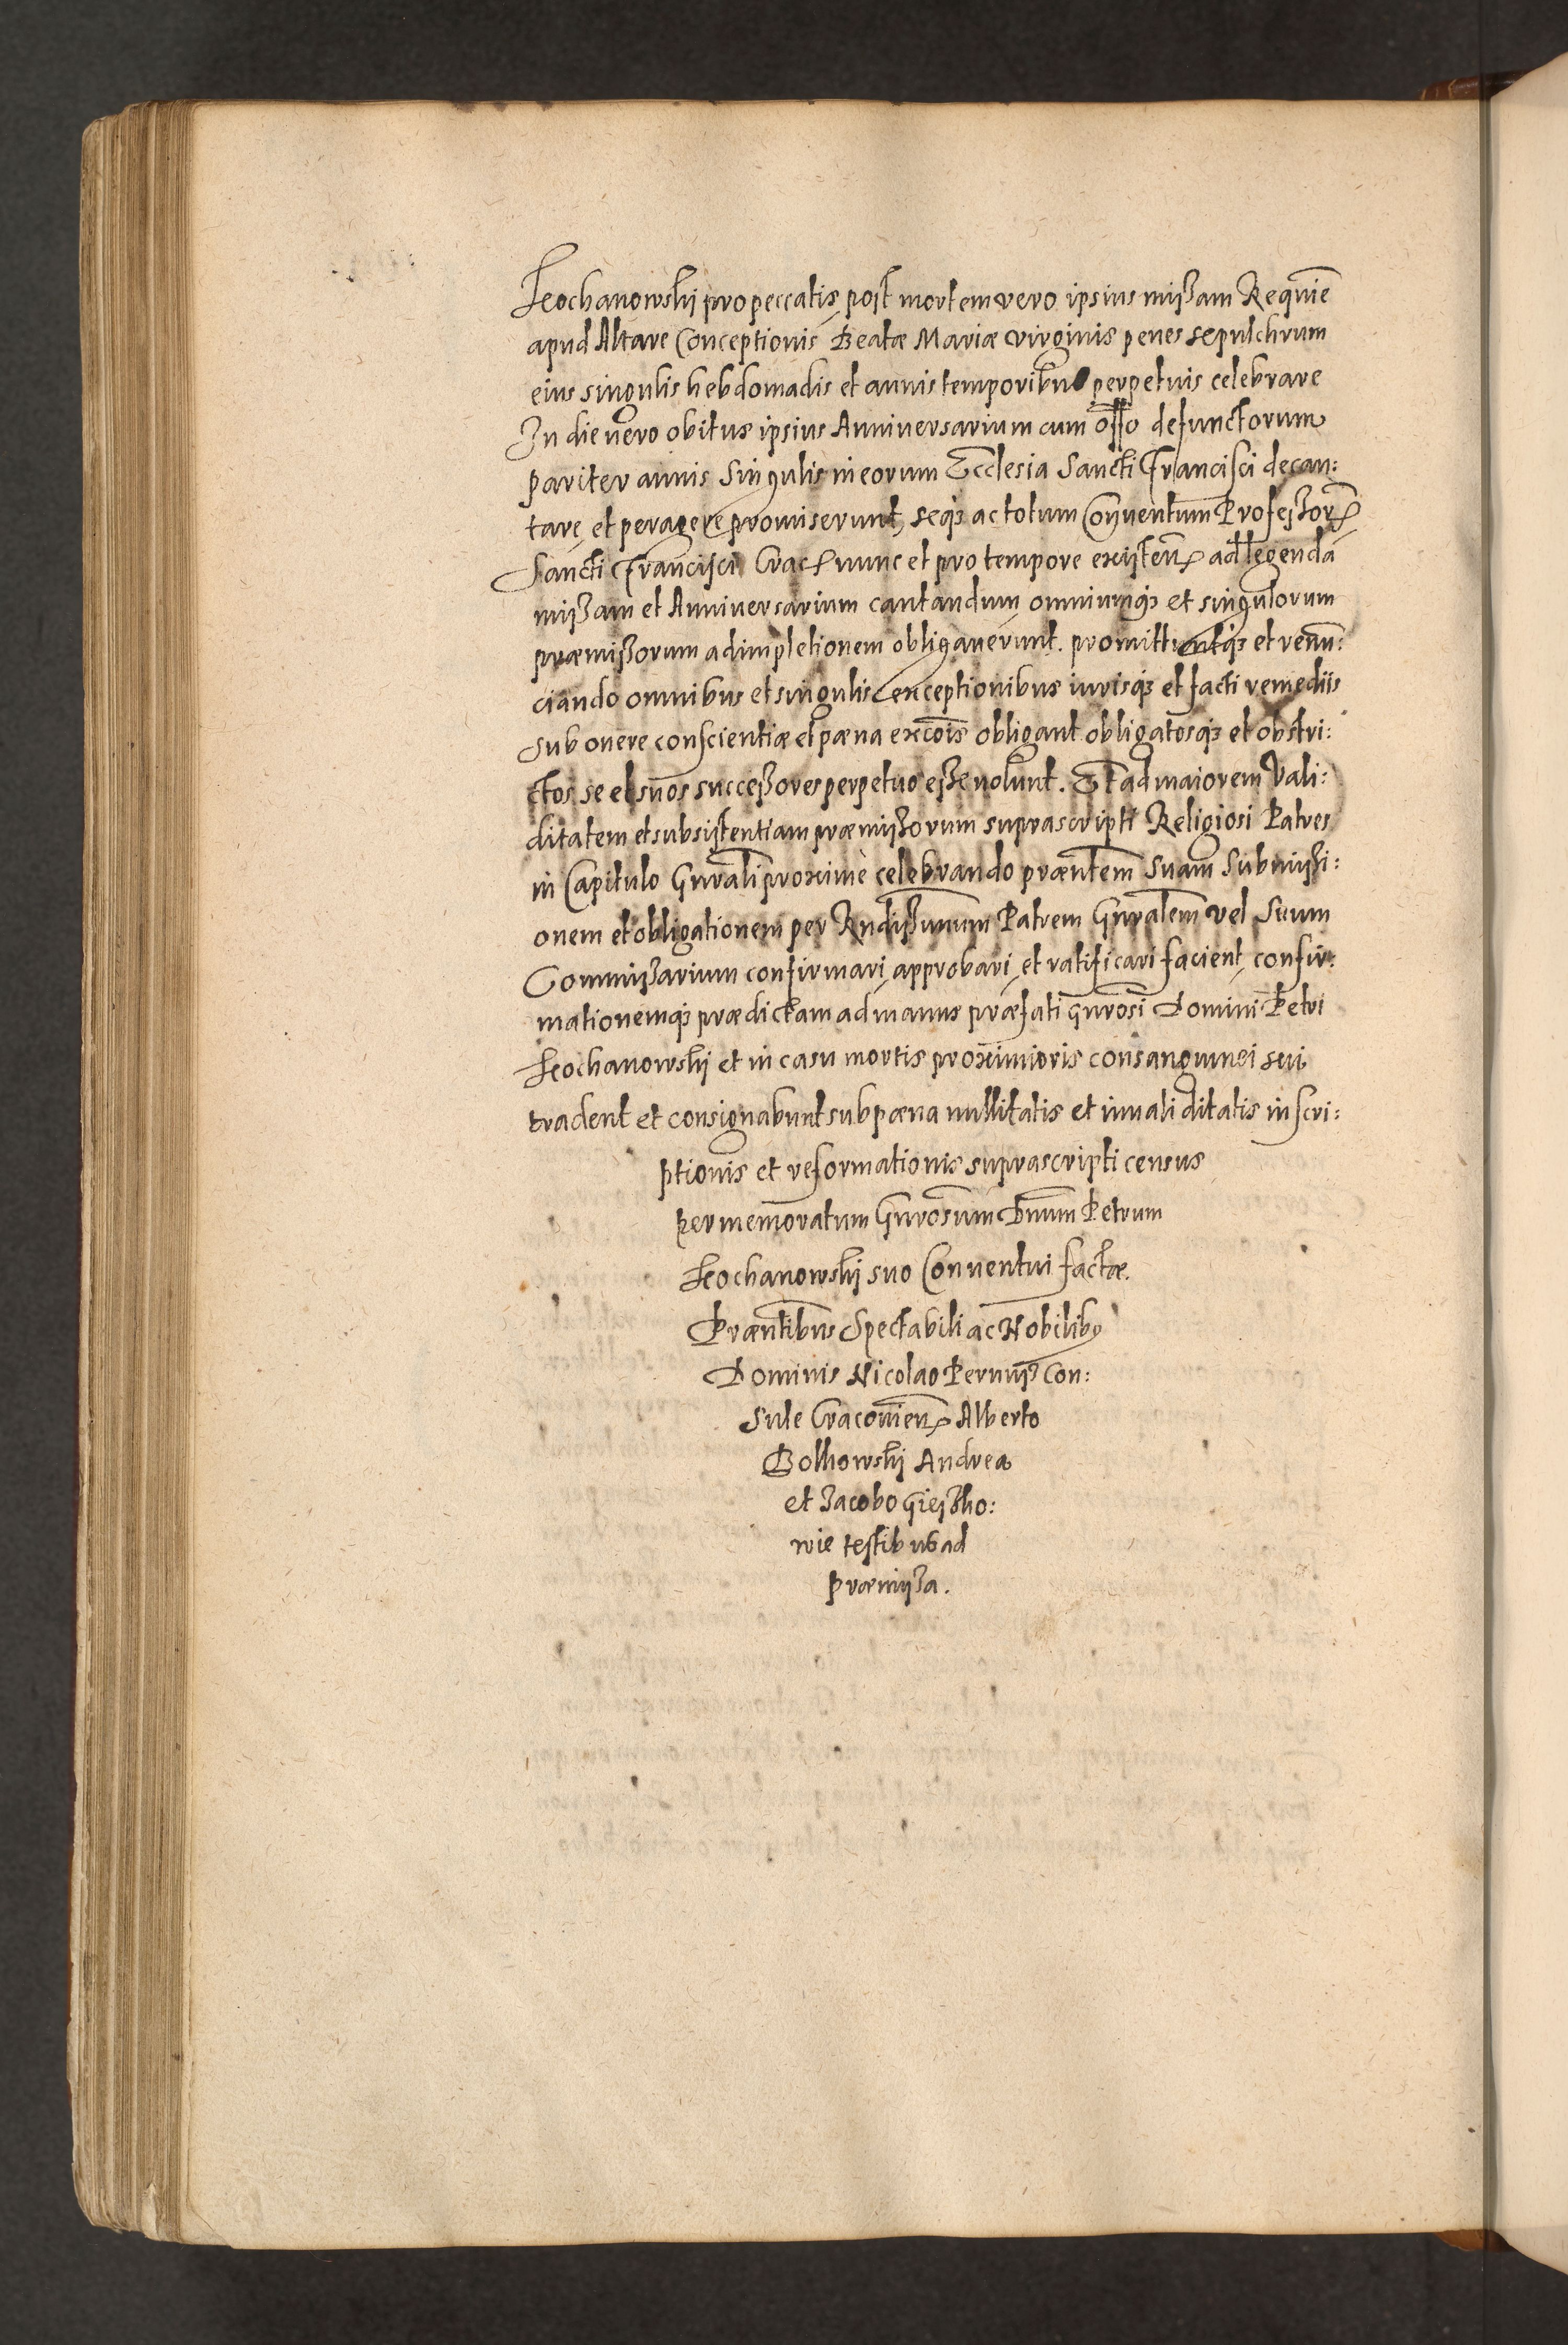 Kochanowskij pro peccatis, post mortem vero ipsius missam Requie̅
apud Altare Conceptionis Beatæ Mariæ virginis penes sepulchrum
eius singulis hebdomadis et annis temporibus perpetuis celebrare
In die uero obitus ipsius Anniuersarium cum offo̅ defunctorum
pariter annis singulis in eorum Ecclesia Sancti Francisci decan:
tare, et peragere promiserunt, seqꝫ ac totum Conuentum Professor̅
Sancti Francisci Crac: nunc et pro tempore existen̅: ad legenda̅
missam et Anniuersarium cantandum, omniumqꝫ et singulorum
præmissorum adimpletionem obligauerunt. promittuntqꝫ et renu̅:
ciando omnibus et singulis exceptionibus iurisqꝫ et facti remedijs
sub onere conscientiæ et pæna exco̅is obligant obligatosqꝫ et obstri:
ctos se et suos successores perpetuo esse uolunt. Et ad maiorem Vali:
ditatem et subsistentiam præmissorum suprascripti Religiosi Patres
in Capitulo Gnr̅ali proxime celebrando præn̅tem suam submissi:
onem et obligationem per Rndissimum̅ Patrem Gnr̅alem vel Suum
Commissarium confirmari, approbari, et ratificari facient, confir:
mationemqꝫ prædictam ad manus præfati gnr̅osi Domini Petri
Kochanowskij et in casu mortis proximioris consanguinei sui
tradent et consignabunt sub pæna nullitatis et inualiditatis inscri:
ptionis et reformationis suprascripti census
per memoratum Gnr̅osum Dnu̅m Petrum
Kochanowskij suo Conuentui factæ.
Præn̅tibus Spectabili ac Nobilibꝫ
Dominis Nicolao Pernus Con:
sule Cracouien̅: Alberto
Golkowskij Andrea
et Jacobo Giesko:
wie testibus ad
præmissa.